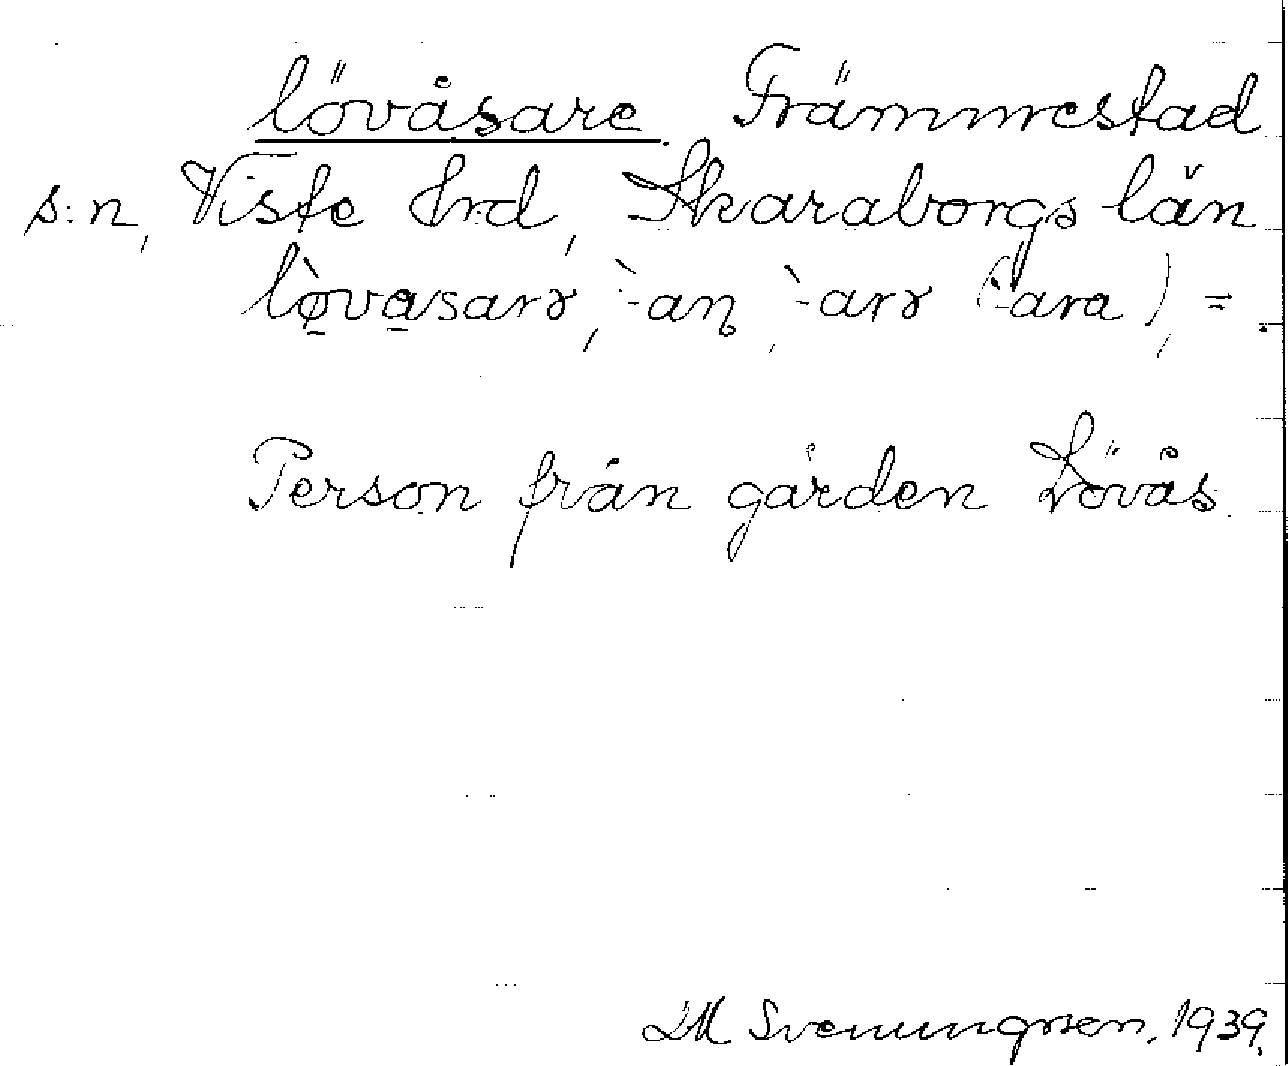 lövåsare. Främmestad
s:n, Viste hrd, Skaraborgs län
lø̱̀va̱sarə, `-aɳ, `-arə (`-ara), =.
Person från gården Lövås.
LM Svenungsson, 1939.